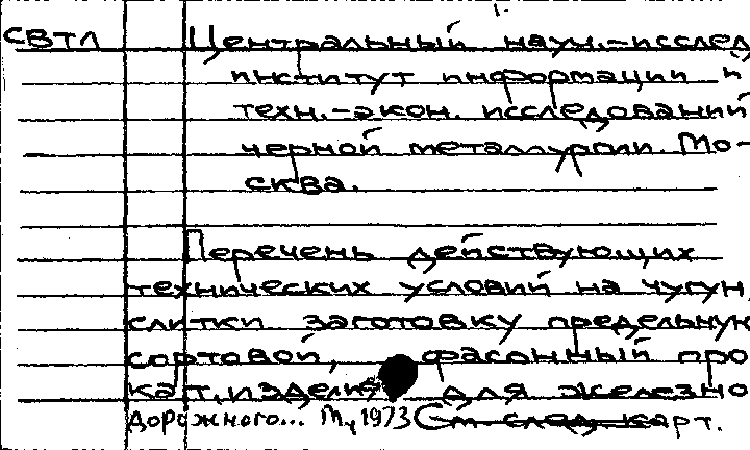 1.
СВТЛ Центральный научн.-исслед
институт информации и
техн.-экон. исследований
черной металлургии. Мо-
сква.
Перечень действующих
технических условий на чугун,
слитки заготовку предельную
сортовой, фасонный про
кат, изделия для железно
дорожного... М, 1973 См. след. карт.